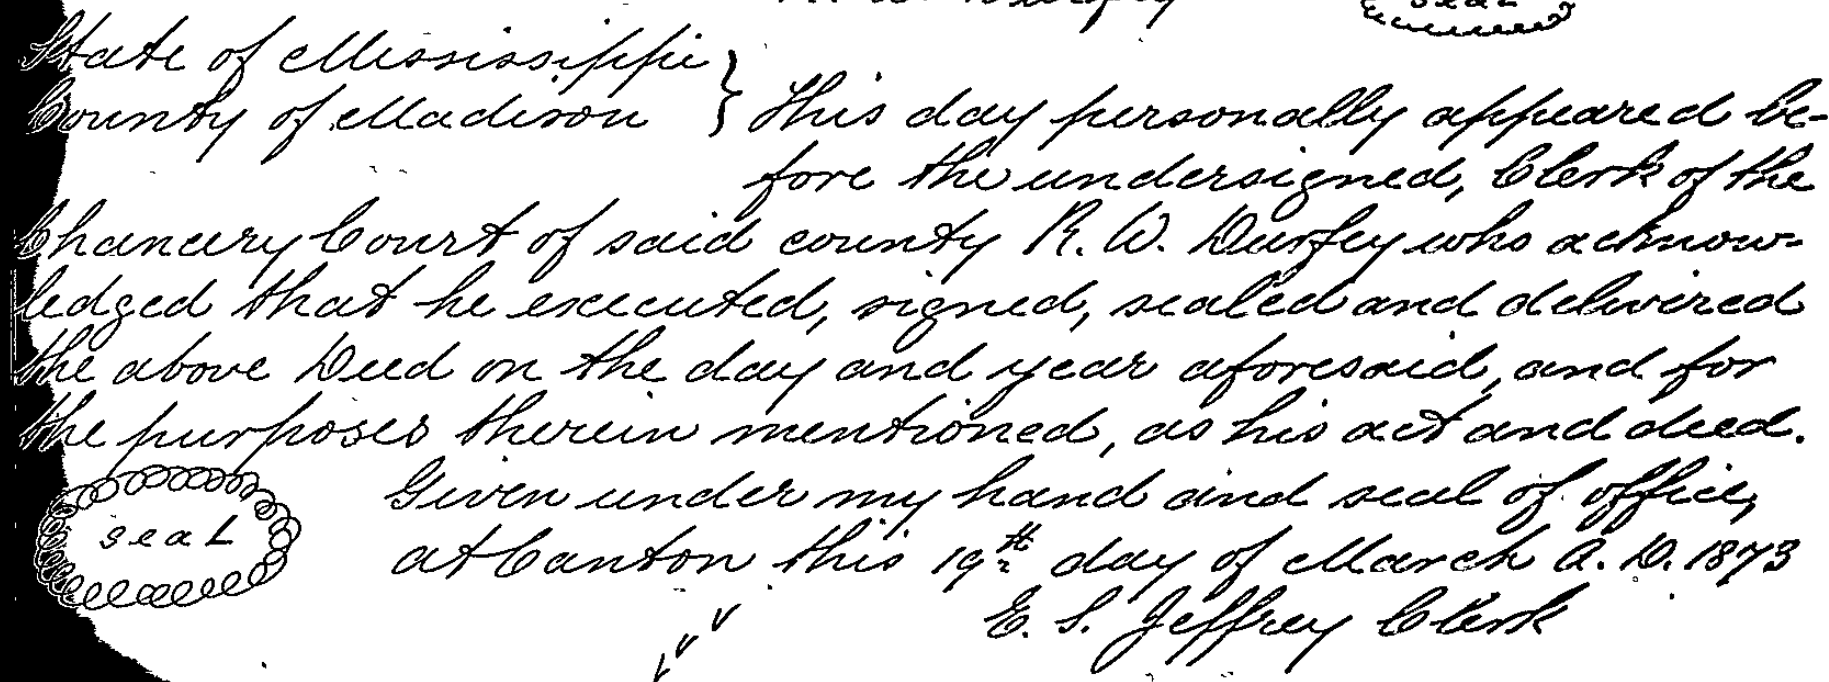 seal
State of Mississippi }
County of Madison } This day personally appeared be-
fore the undersigned, Clerk of the
Chancery Court of said county R. W. Durfey who acknow-
ledged that he executed, signed, sealed and delivered
the above Deed on the day and year aforesaid, and for
the purposes therein mentioned, as his act and deed.
Given under my hand and seal of office,
seaL
at Canton this 19th day of March A. D. 1873
E. S. Jeffrey Clerk